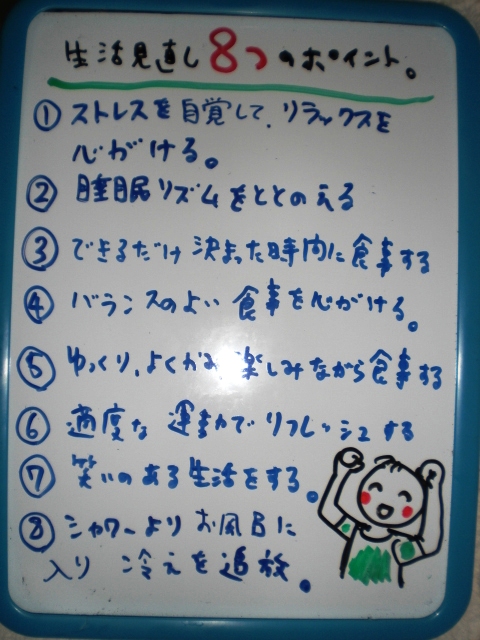 生活見直し8つのポイント。
①ストレスを自覚して、リラックスを
心がける。
②睡眠リズムをととのえる
③できるだけ決まった時間に食事する
④バランスのよい食事を心がける。
⑤ゆっくり、よくかみ楽しみながら食事する
⑥適度な運動でリフレッシュする
⑦笑いのある生活をする。
⑧シャワーよりお風呂に
入り冷えを追放。